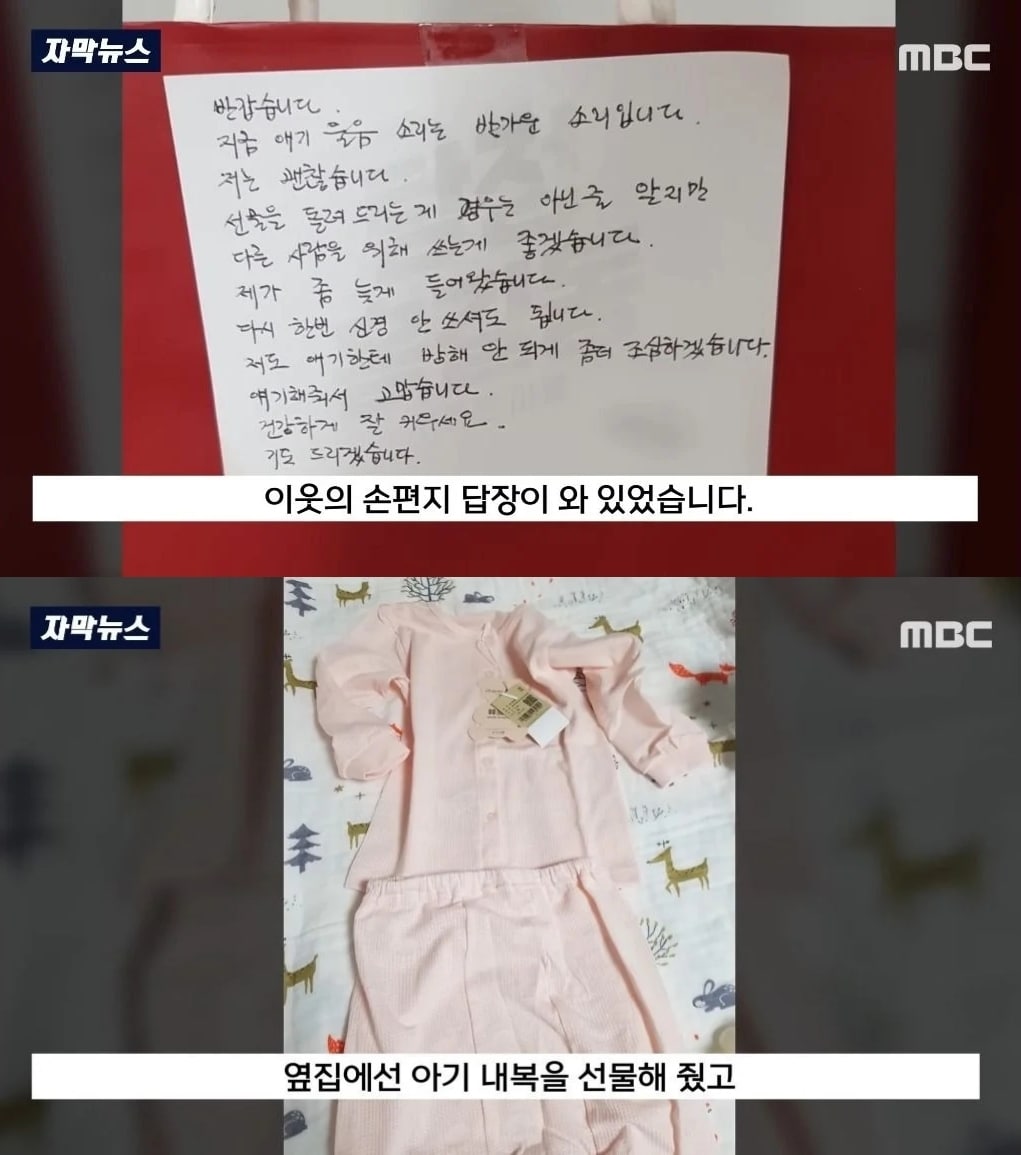 자막뉴스
MBC
반갑습니다.
지금 애기 울음 소리는 반가운 소리입니다.
저는 괜찮습니다.
선물을 돌려 드리는게 경우는 아닌줄 알지만
다른 사람을 위해 쓰는게 좋겠습니다.
제가 좀 늦게 들어왔습니다.
다시 한번 신경 안 쓰셔도 됩니다.
저도 애기한테 방해 안 되게 좀더 조심하겠습니다.
얘기해줘서 고맙습니다.
건강하게 잘 키우세요.
기도 드리겠습니다.
이웃의 손편지 답장이 와 있었습니다.
자막뉴스
MBC
옆집에선 아기 내복을 선물해 줬고